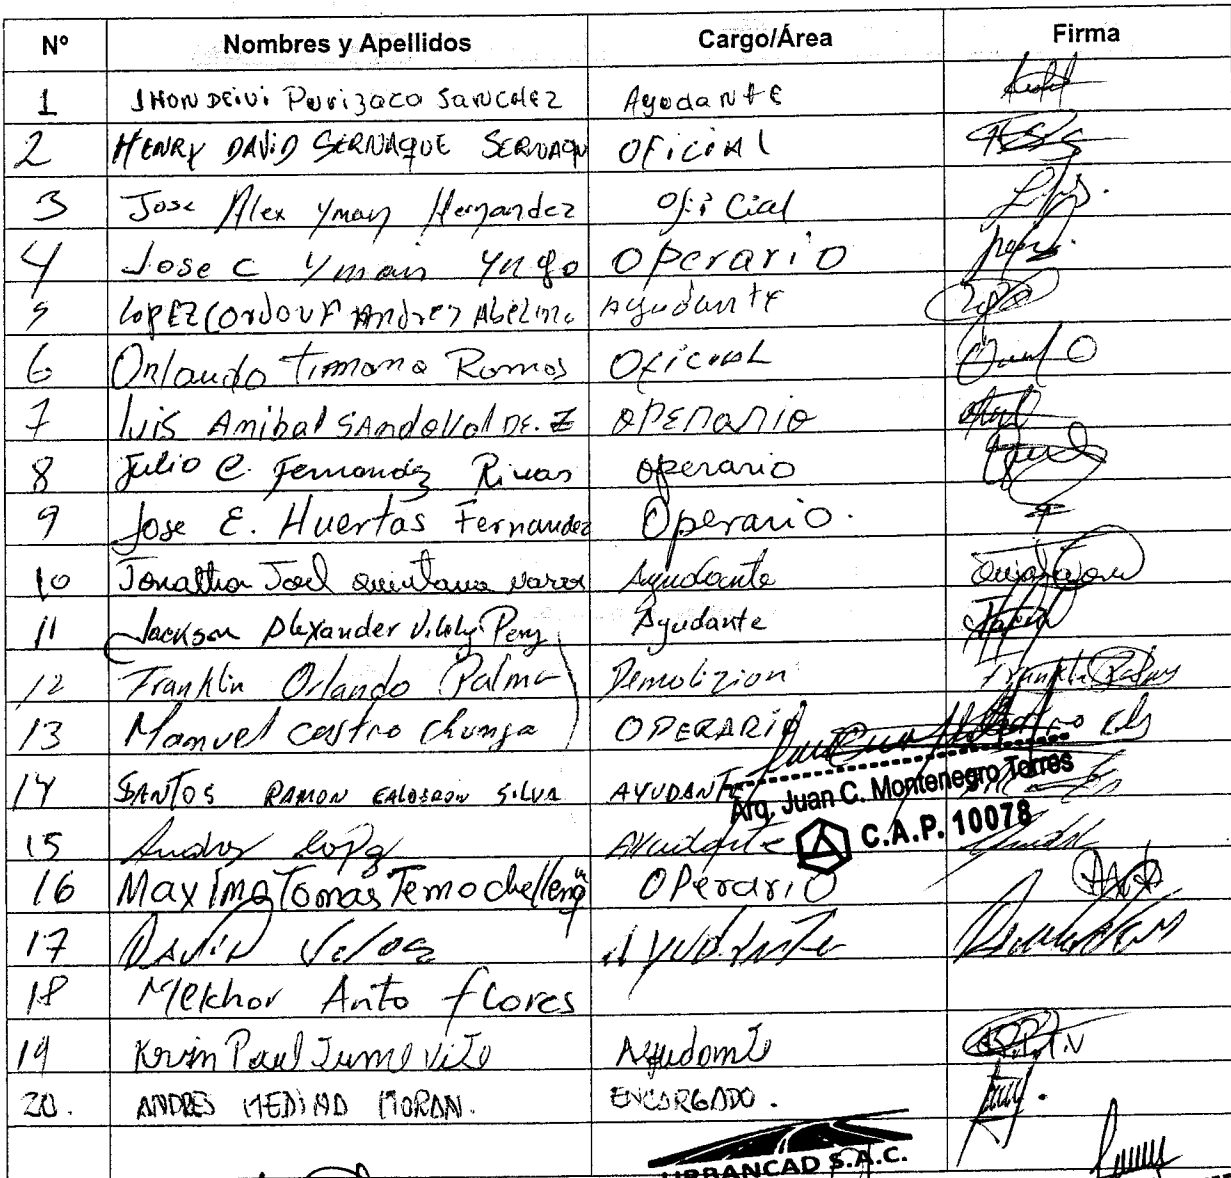 Nº Nombres y Apellidos Cargo/Área Firma
1 JHON DEIVI Purizaca Sanchez Ayudante
2 HENRY DAVID SERNAQUE SERNAQU OFICIAL
3 Jose Alex Yman Hernandez Oficial
4 Jose C Yman Yngo Operario
5 LOPEZ CORDOVA Andres Abelino Ayudante
6 Orlando Timana Ramos OFICIAL
7 luis Anibal SAndoVal DE. Z OPERARIO
8 Julio C. Fernandez Rivas operario
9 Jose E. Huertas Fernandez Operario.
10 Jonathan Joel quintana Ayudante
11 Jackson Alexander Ayudante
12 Franklin Orlando Palma Demolizion Franklin Palma
13 Manuel castro chunga OPERARIO
14 SANTOS RAMON CALDERON SILVA AYUDANTE
Arq. Juan C. Montenegro Torres
C.A.P. 10078
15 Andres Lopez Ayudante
16 Maximo Tomas Temoche Operario
17 DAVID AYUDANTE
18 Melchor Anto flores
19 Kevin Paul Jume Vite Ayudante
20. ANDRES MEDINA MORAN. ENCARGADO.
URBANCAD S.A.C.